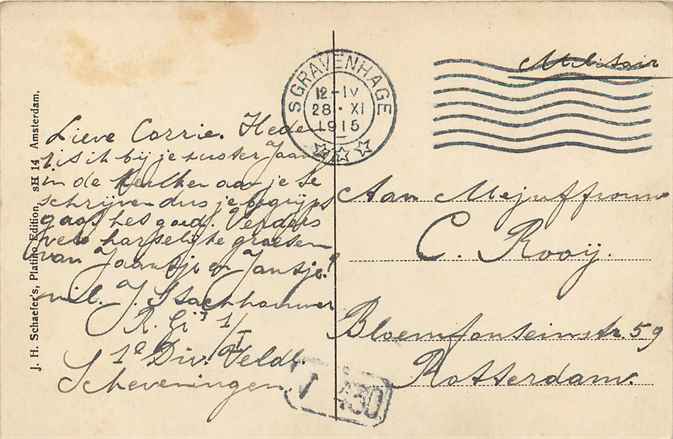 J. H. Schaefer's, Platino Edition, SH 14 Amsterdam.
'S GRAVENHAGE
12-IV
28 · XI
1915
Militair
Lieve Corrie. Hede
zit ik bij je zuster Jaan
in de keuken aan je te
schrijven dus je begrijps
gaat het goed. Verders
vele hartelijke groeten
van Jaantje en Jantje.
mil. J. Stachhouwer
R. Gr 1/1
1e Div. Veldl.
Scheveningen
430
Aan Mejuffrouw
C. Rooij.
Bloemfonteinstr. 59
Rotterdam.